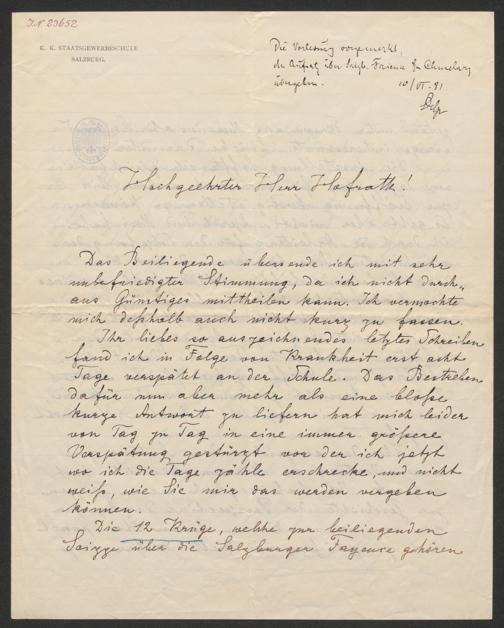 J.N 23652
K. K. STAATSGEWERBESCHULE
SALZBURG.
Die Vorlesung vorgemerkt,
der Aufsatz über Salzb.
übergeben.
10/VI. 91.
Hochgeehrter Herr Hofrath!
Das Beiliegende übersende ich mit sehr
unbefriedigter Stimmung, da ich nicht durch-
aus Günstiges mittheilen kann. Ich vermochte
mich deßhalb auch nicht kurz zu fassen.
Ihr liebes so auszeichnendes letztes Schreiben
fand ich in Folge von Krankheit erst acht
Tage verspätet an der Schule. Das Bestreben
dafür nun aber mehr als eine bloße
kurze Antwort zu liefern hat mich leider
von Tag zu Tag in eine immer größere
Verspätung gestürzt vor der ich jetzt
wo ich die Tage zähle erschrecke, und nicht
weiß, wie Sie mir das werden vergeben
können.
Die 12 Krüge, welche zur beiliegenden
Scizze über die Salzburger Fayence gehören